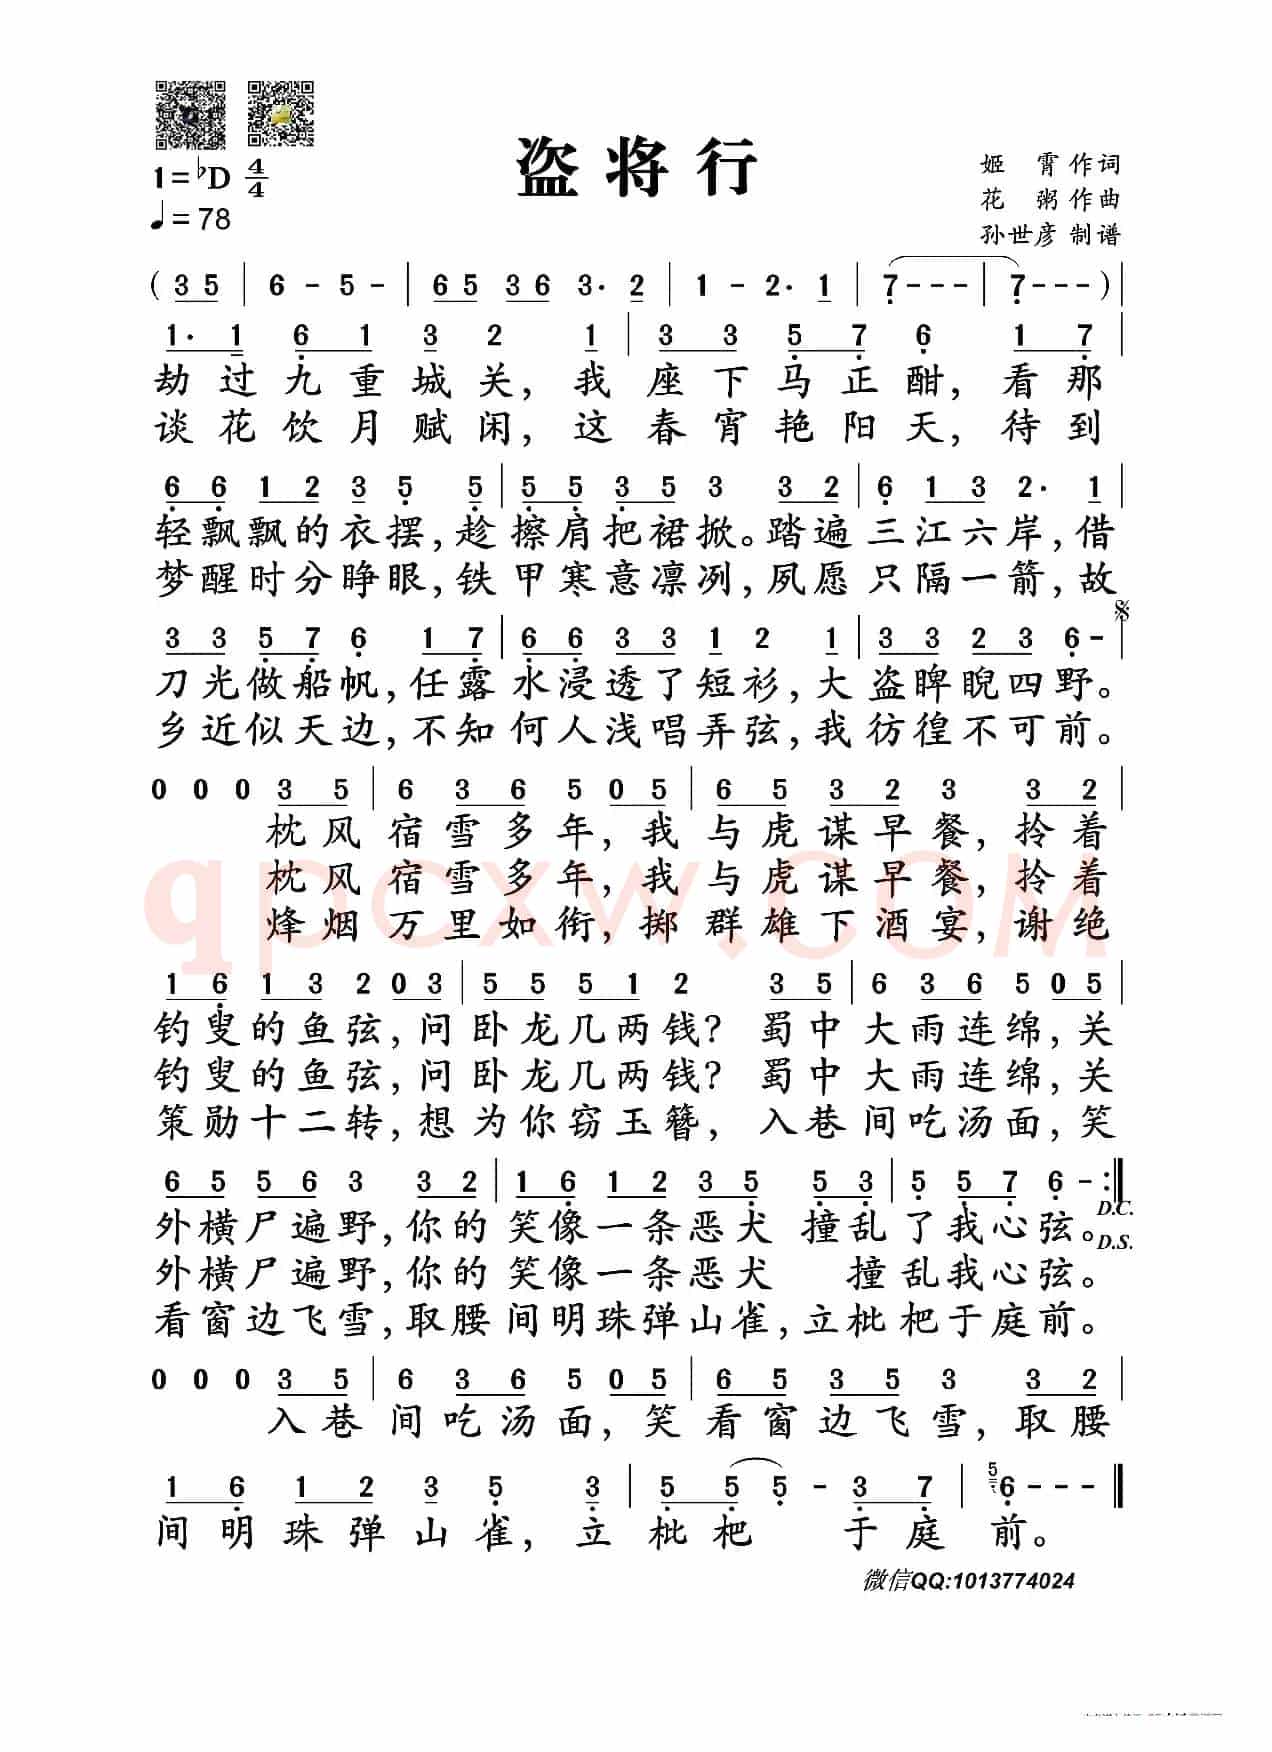 盗将行
1=♭D 4/4
♩=78
姬 霄 作词
花 粥 作曲
孙世彦 制谱
( 3 5 | 6 - 5 - | 6 5 3 6 3· 2 | 1 - 2· 1 | 7 - - - | 7 - - - ) |
1· 1 6 1 3 2 1 | 3 3 5 7 6 1 7 |
劫过九重城关，我座下马正酣，看那
谈花饮月赋闲，这春宵艳阳天，待到
6 6 1 2 3 5 5 | 5 5 3 5 3 3 2 | 6 1 3 2· 1 |
轻飘飘的衣摆，趁擦肩把裙掀。踏遍三江六岸，借
梦醒时分睁眼，铁甲寒意凛冽，夙愿只隔一箭，故
3 3 5 7 6 1 7 | 6 6 3 3 1 2 1 | 3 3 2 3 6 - |
刀光做船帆，任露水浸透了短衫，大盗睥睨四野。
乡近似天边，不知何人浅唱弄弦，我彷徨不可前。
0 0 0 3 5 | 6 3 6 5 0 5 | 6 5 3 2 3 3 2 |
枕风宿雪多年，我与虎谋早餐，拎着
枕风宿雪多年，我与虎谋早餐，拎着
烽烟万里如衔，掷群雄下酒宴，谢绝
qpcxw.COM
1 6 1 3 2 0 3 | 5 5 5 1 2 3 5 | 6 3 6 5 0 5 |
钓叟的鱼弦，问卧龙几两钱？蜀中大雨连绵，关
钓叟的鱼弦，问卧龙几两钱？蜀中大雨连绵，关
策勋十二转，想为你窃玉簪，入巷间吃汤面，笑
6 5 5 6 3 3 2 | 1 6 1 2 3 5 5 3 | 5 5 7 6 - :‖
外横尸遍野，你的笑像一条恶犬 撞乱了我心弦。 D.C.
D.S.
外横尸遍野，你的笑像一条恶犬 撞乱我心弦。
看窗边飞雪，取腰间明珠弹山雀，立枇杷于庭前。
0 0 0 3 5 | 6 3 6 5 0 5 | 6 5 3 5 3 3 2 |
入巷间吃汤面，笑看窗边飞雪，取腰
1 6 1 2 3 5 3 | 5 5 5 - 3 7 | 5 6 - - - ‖
间明珠弹山雀，立枇杷 于庭前。
微信QQ:1013774024